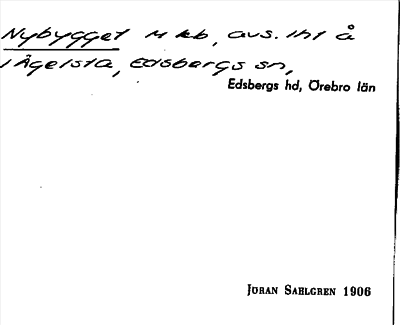 Nybygget M kb, avs. iht å
i Ågelsta, Edsbergs sn,
Edsbergs hd, Örebro län
Jöran Sahlgren 1906